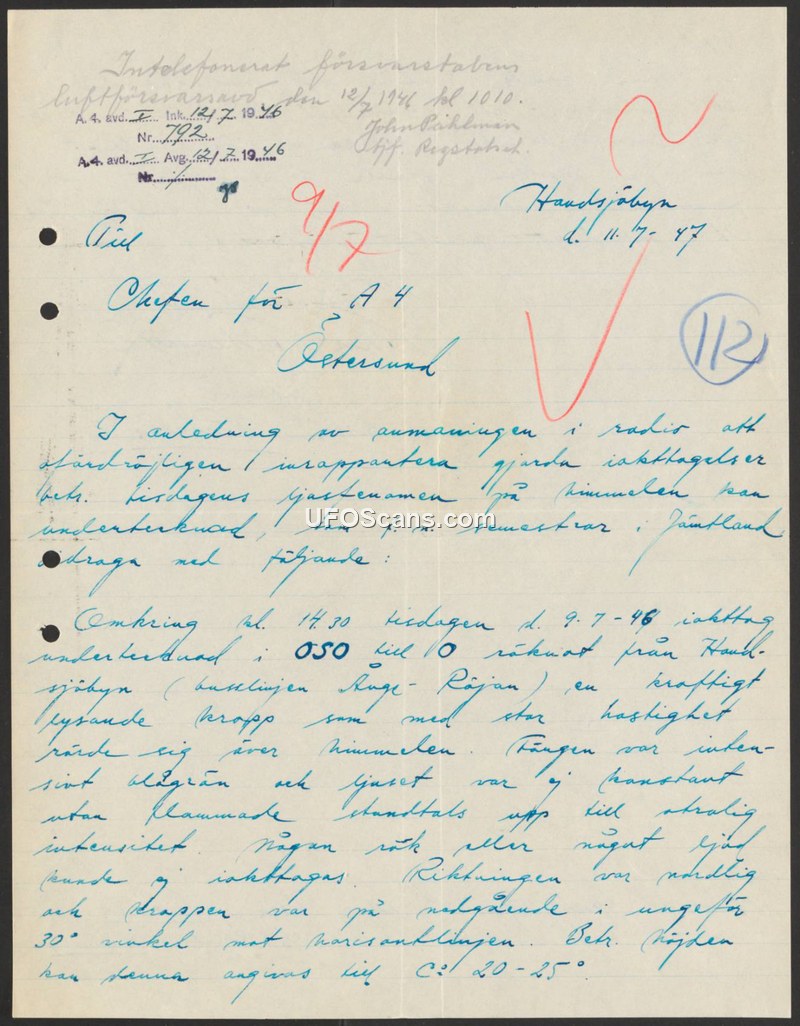 Intelefonerat försvarsstabens
luftförsvarsavd den 12/7 1946 kl 1010.
A. 4. avd. I Ink. 12/7 1946
Nr 792
John Påhlman
A. 4. avd. I Avg. 12/7 1946
tjf. Regstabsch.
Nr.
9/7
Handsjöbyn
d. 11.7-47
Till
Chefen för A 4
Östersund
112
I anledning av anmaningen i radio att
ofördröjligen inrapportera gjorda iakttagelser
betr. tisdagens ljusfenomen på himmelen kan
undertecknad, som f. n. semestrar i Jämtland
bidraga med följande:
UFOScans.com
Omkring kl. 14.30 tisdagen d. 9.7-46 iakttog
undertecknad i OSO till O räknat från Hand-
sjöbyn (busslinjen Ånge-Röjan) en kraftigt
lysande kropp som med stor hastighet
rörde sig över himmelen. Färgen var inten-
sivt blågrön och ljuset var ej konstant
utan flammade stundtals upp till otrolig
intensitet. Någon rök eller något ljud
kunde ej iakttagas. Riktningen var nordlig
och kroppen var på nedgående i ungefär
30° vinkel mot horisontlinjen. Betr. höjden
kan denna angivas till C:a 20-25°.